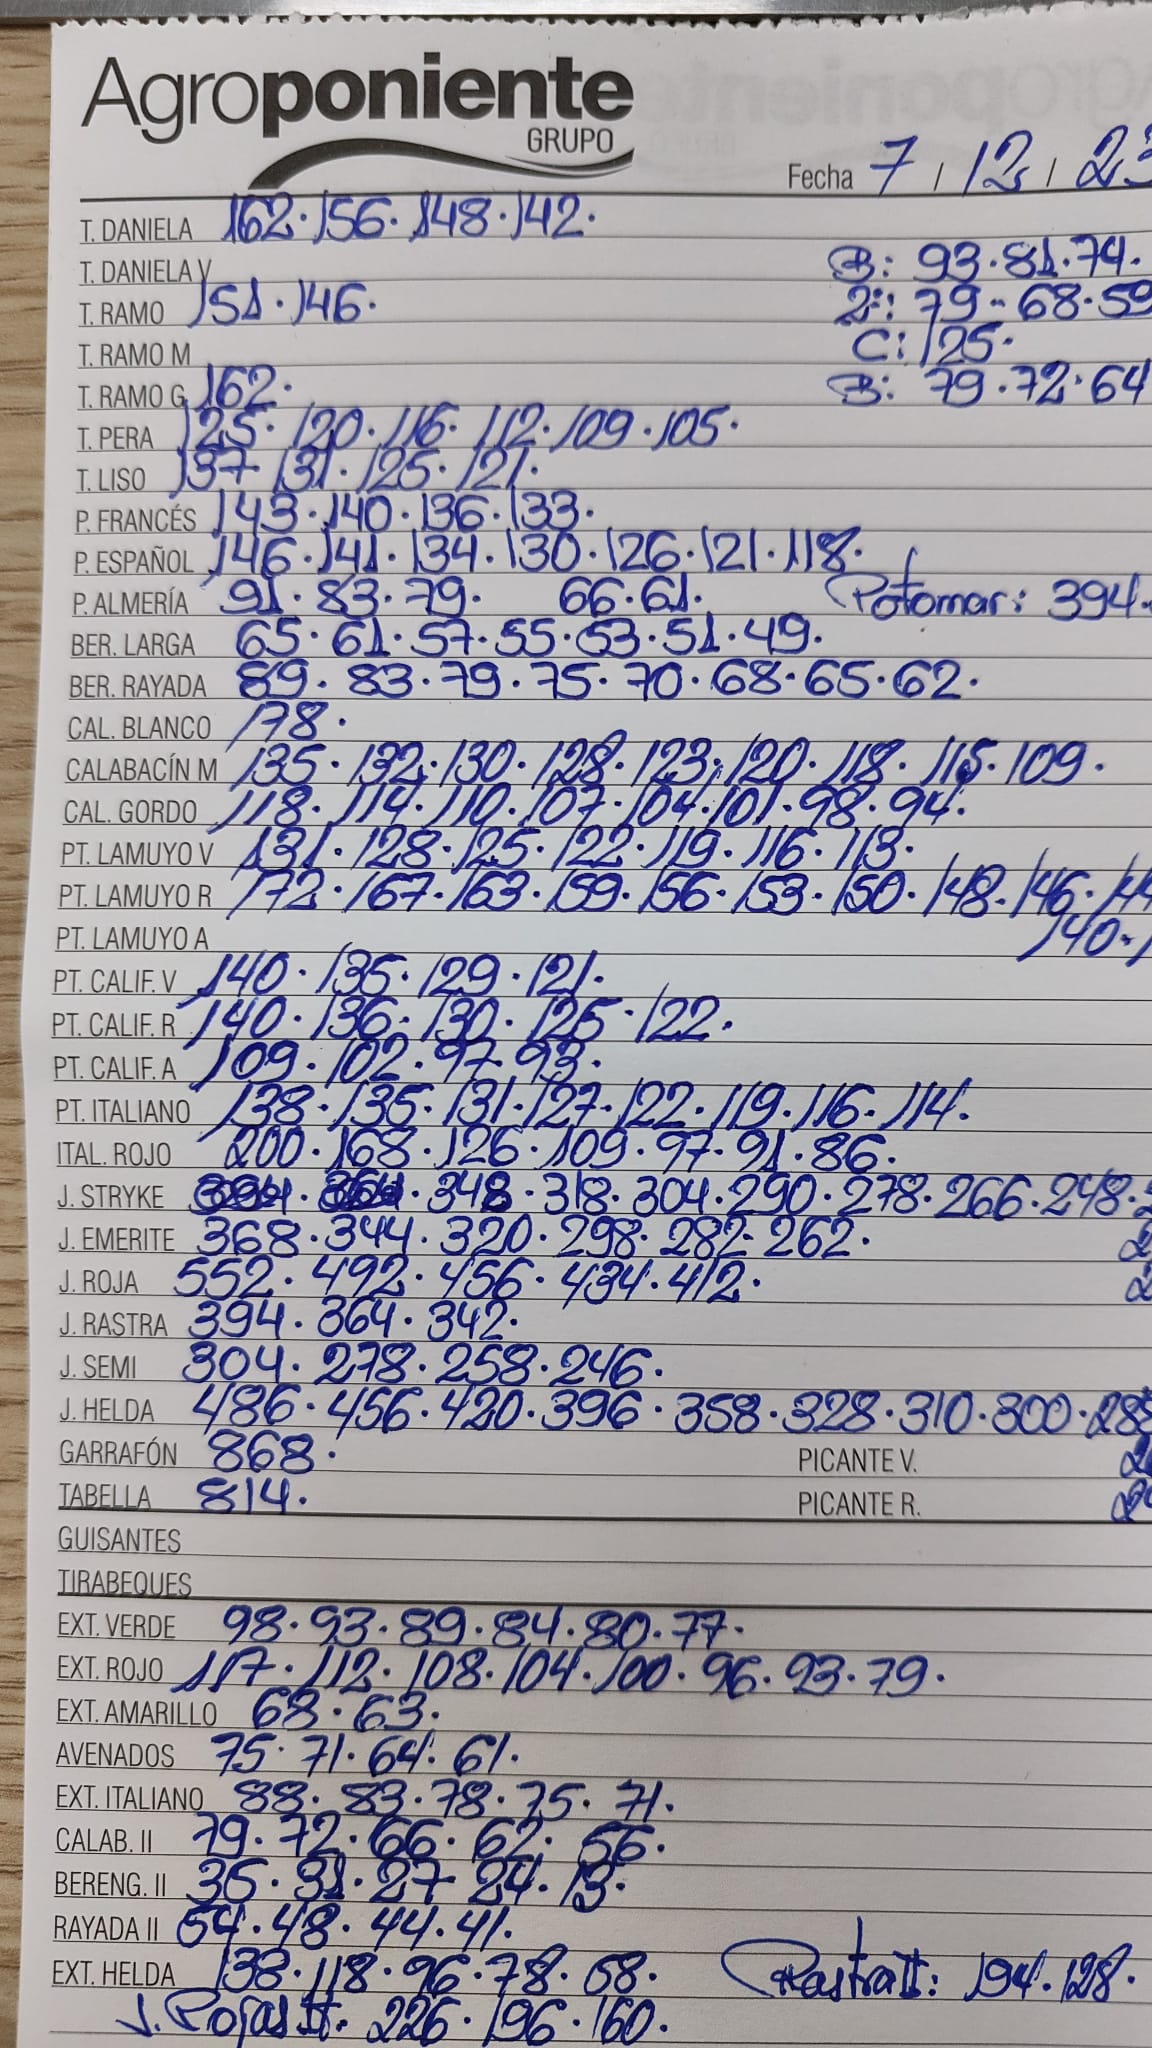 Agroponiente
GRUPO
Fecha 7 / 12 / 23
T. DANIELA 162 · 156 · 148 · 142 ·
T. DANIELA V B: 93 · 81 · 74 ·
T. RAMO 151 · 146 · 2ª: 79 · 68 · 59
T. RAMO M C: 125 ·
T. RAMO G 162 · B: 79 · 72 · 64
T. PERA 125 · 120 · 116 · 112 · 109 · 105 ·
T. LISO 137 · 131 · 125 · 121 ·
P. FRANCÉS 143 · 140 · 136 · 133 ·
P. ESPAÑOL 146 · 141 · 134 · 130 · 126 · 121 · 118 ·
P. ALMERÍA 91 · 83 · 79 · 66 · 61 · Potomar: 394 ·
BER. LARGA 65 · 61 · 57 · 55 · 53 · 51 · 49 ·
BER. RAYADA 89 · 83 · 79 · 75 · 70 · 68 · 65 · 62 ·
CAL. BLANCO 178 ·
CALABACÍN M 135 · 132 · 130 · 128 · 123 · 120 · 118 · 115 · 109 ·
CAL. GORDO 118 · 114 · 110 · 107 · 104 · 101 · 98 · 94 ·
PT. LAMUYO V 131 · 128 · 125 · 122 · 119 · 116 · 113 ·
PT. LAMUYO R 172 · 167 · 163 · 159 · 156 · 153 · 150 · 148 · 146 ·
PT. LAMUYO A 140 ·
PT. CALIF. V 140 · 135 · 129 · 121 ·
PT. CALIF. R 140 · 136 · 130 · 125 · 122 ·
PT. CALIF. A 109 · 102 · 97 · 93 ·
PT. ITALIANO 138 · 135 · 131 · 127 · 122 · 119 · 116 · 114 ·
ITAL. ROJO 200 · 168 · 126 · 109 · 97 · 91 · 86 ·
J. STRYKE 348 · 318 · 304 · 290 · 278 · 266 · 248 ·
J. EMERITE 368 · 344 · 320 · 298 · 282 · 262 ·
J. ROJA 552 · 492 · 456 · 434 · 412 ·
J. RASTRA 394 · 364 · 342 ·
J. SEMI 304 · 278 · 258 · 246 ·
J. HELDA 486 · 456 · 420 · 396 · 358 · 328 · 310 · 300 ·
GARRAFÓN 868 · PICANTE V.
TABELLA 814 · PICANTE R.
GUISANTES
TIRABEQUES
EXT. VERDE 98 · 93 · 89 · 84 · 80 · 77 ·
EXT. ROJO 117 · 112 · 108 · 104 · 100 · 96 · 93 · 79 ·
EXT. AMARILLO 68 · 63 ·
AVENADOS 75 · 71 · 64 · 61 ·
EXT. ITALIANO 88 · 83 · 78 · 75 · 71 ·
CALAB. II 79 · 72 · 66 · 62 · 56 ·
BERENG. II 35 · 31 · 27 · 24 · 13 ·
RAYADA II 54 · 48 · 44 · 41 ·
EXT. HELDA 138 · 118 · 96 · 78 · 58 · Rastra II: 194 · 128 ·
J. Rojas II · 226 · 196 · 160 ·